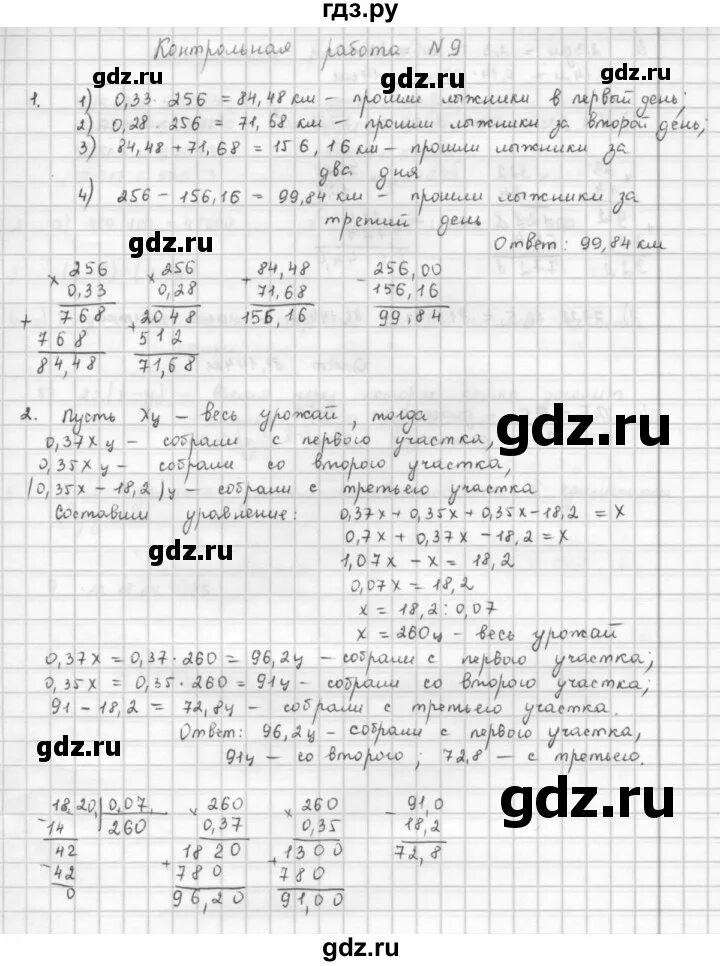 гдз.ру
Контрольная работа №9
gdz.ru gdz.ru
1. 1) 0,33 · 256 = 84,48 км – прошли лыжники в первый день;
2) 0,28 · 256 = 71,68 км – прошли лыжники за второй день;
3) 84,48 + 71,68 = 156,16 км – прошли лыжники за
два дня
4) 256 – 156,16 = 99,84 км – прошли лыжники за
третий день
gdz.ru
Ответ: 99,84 км
× 256
0,33
768
+ 768
84,48
× 256
0,28
2048
+ 512
71,68
+ 84,48
71,68
156,16
- 256,00
156,16
99,84
gdz.ru
2. Пусть Xц – весь урожай, тогда
0,37x ц – собрали с первого участка,
0,35x ц – собрали со второго участка,
(0,35x – 18,2)ц – собрали с третьего участка
Составим уравнение: 0,37x + 0,35x + 0,35x – 18,2 = x
gdz.ru
0,7x + 0,37x – 18,2 = x
1,07x – x = 18,2
0,07x = 18,2
x = 18,2 : 0,07
x = 260ц – весь урожай
gdz.ru
0,37x = 0,37 · 260 = 96,2ц – собрали с первого участка;
0,35x = 0,35 · 260 = 91ц – собрали со второго участка;
91 – 18,2 = 72,8ц – собрали с третьего участка.
gdz.ru
Ответ: 96,2ц – собрали с первого участка,
91ц – со второго; 72,8 – с третьего.
18,20 | 0,07
- 14 260
42
- 42
0
× 260
0,37
1820
+ 780
96,20
× 260
0,35
1300
+ 780
91,00
- 91,0
18,2
72,8
gdz.ru
gdz.ru